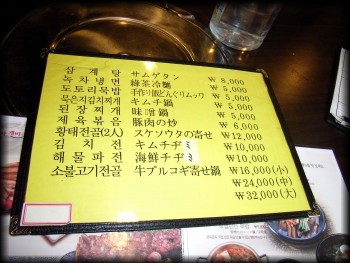 삼계탕 サムゲタン ₩ 8,000
녹차냉면 綠茶冷麵 ₩ 5,000
도토리묵밥 手作り飯どんぐりムック ₩ 5,000
묵은지김치찌개 キムチ鍋 ₩ 5,000
된장찌개 味噌鍋 ₩ 5,000
제육볶음 豚肉の炒 ₩ 6,000
황태전골(2人) スケソウタの寄せ ₩ 12,000
김치전 キムチヂミ ₩10,000
해물파전 海鮮チヂミ ₩10,000
소불고기전골 牛プルコギ寄せ鍋 ₩16,000(小)
₩24,000(中)
₩32,000(大)